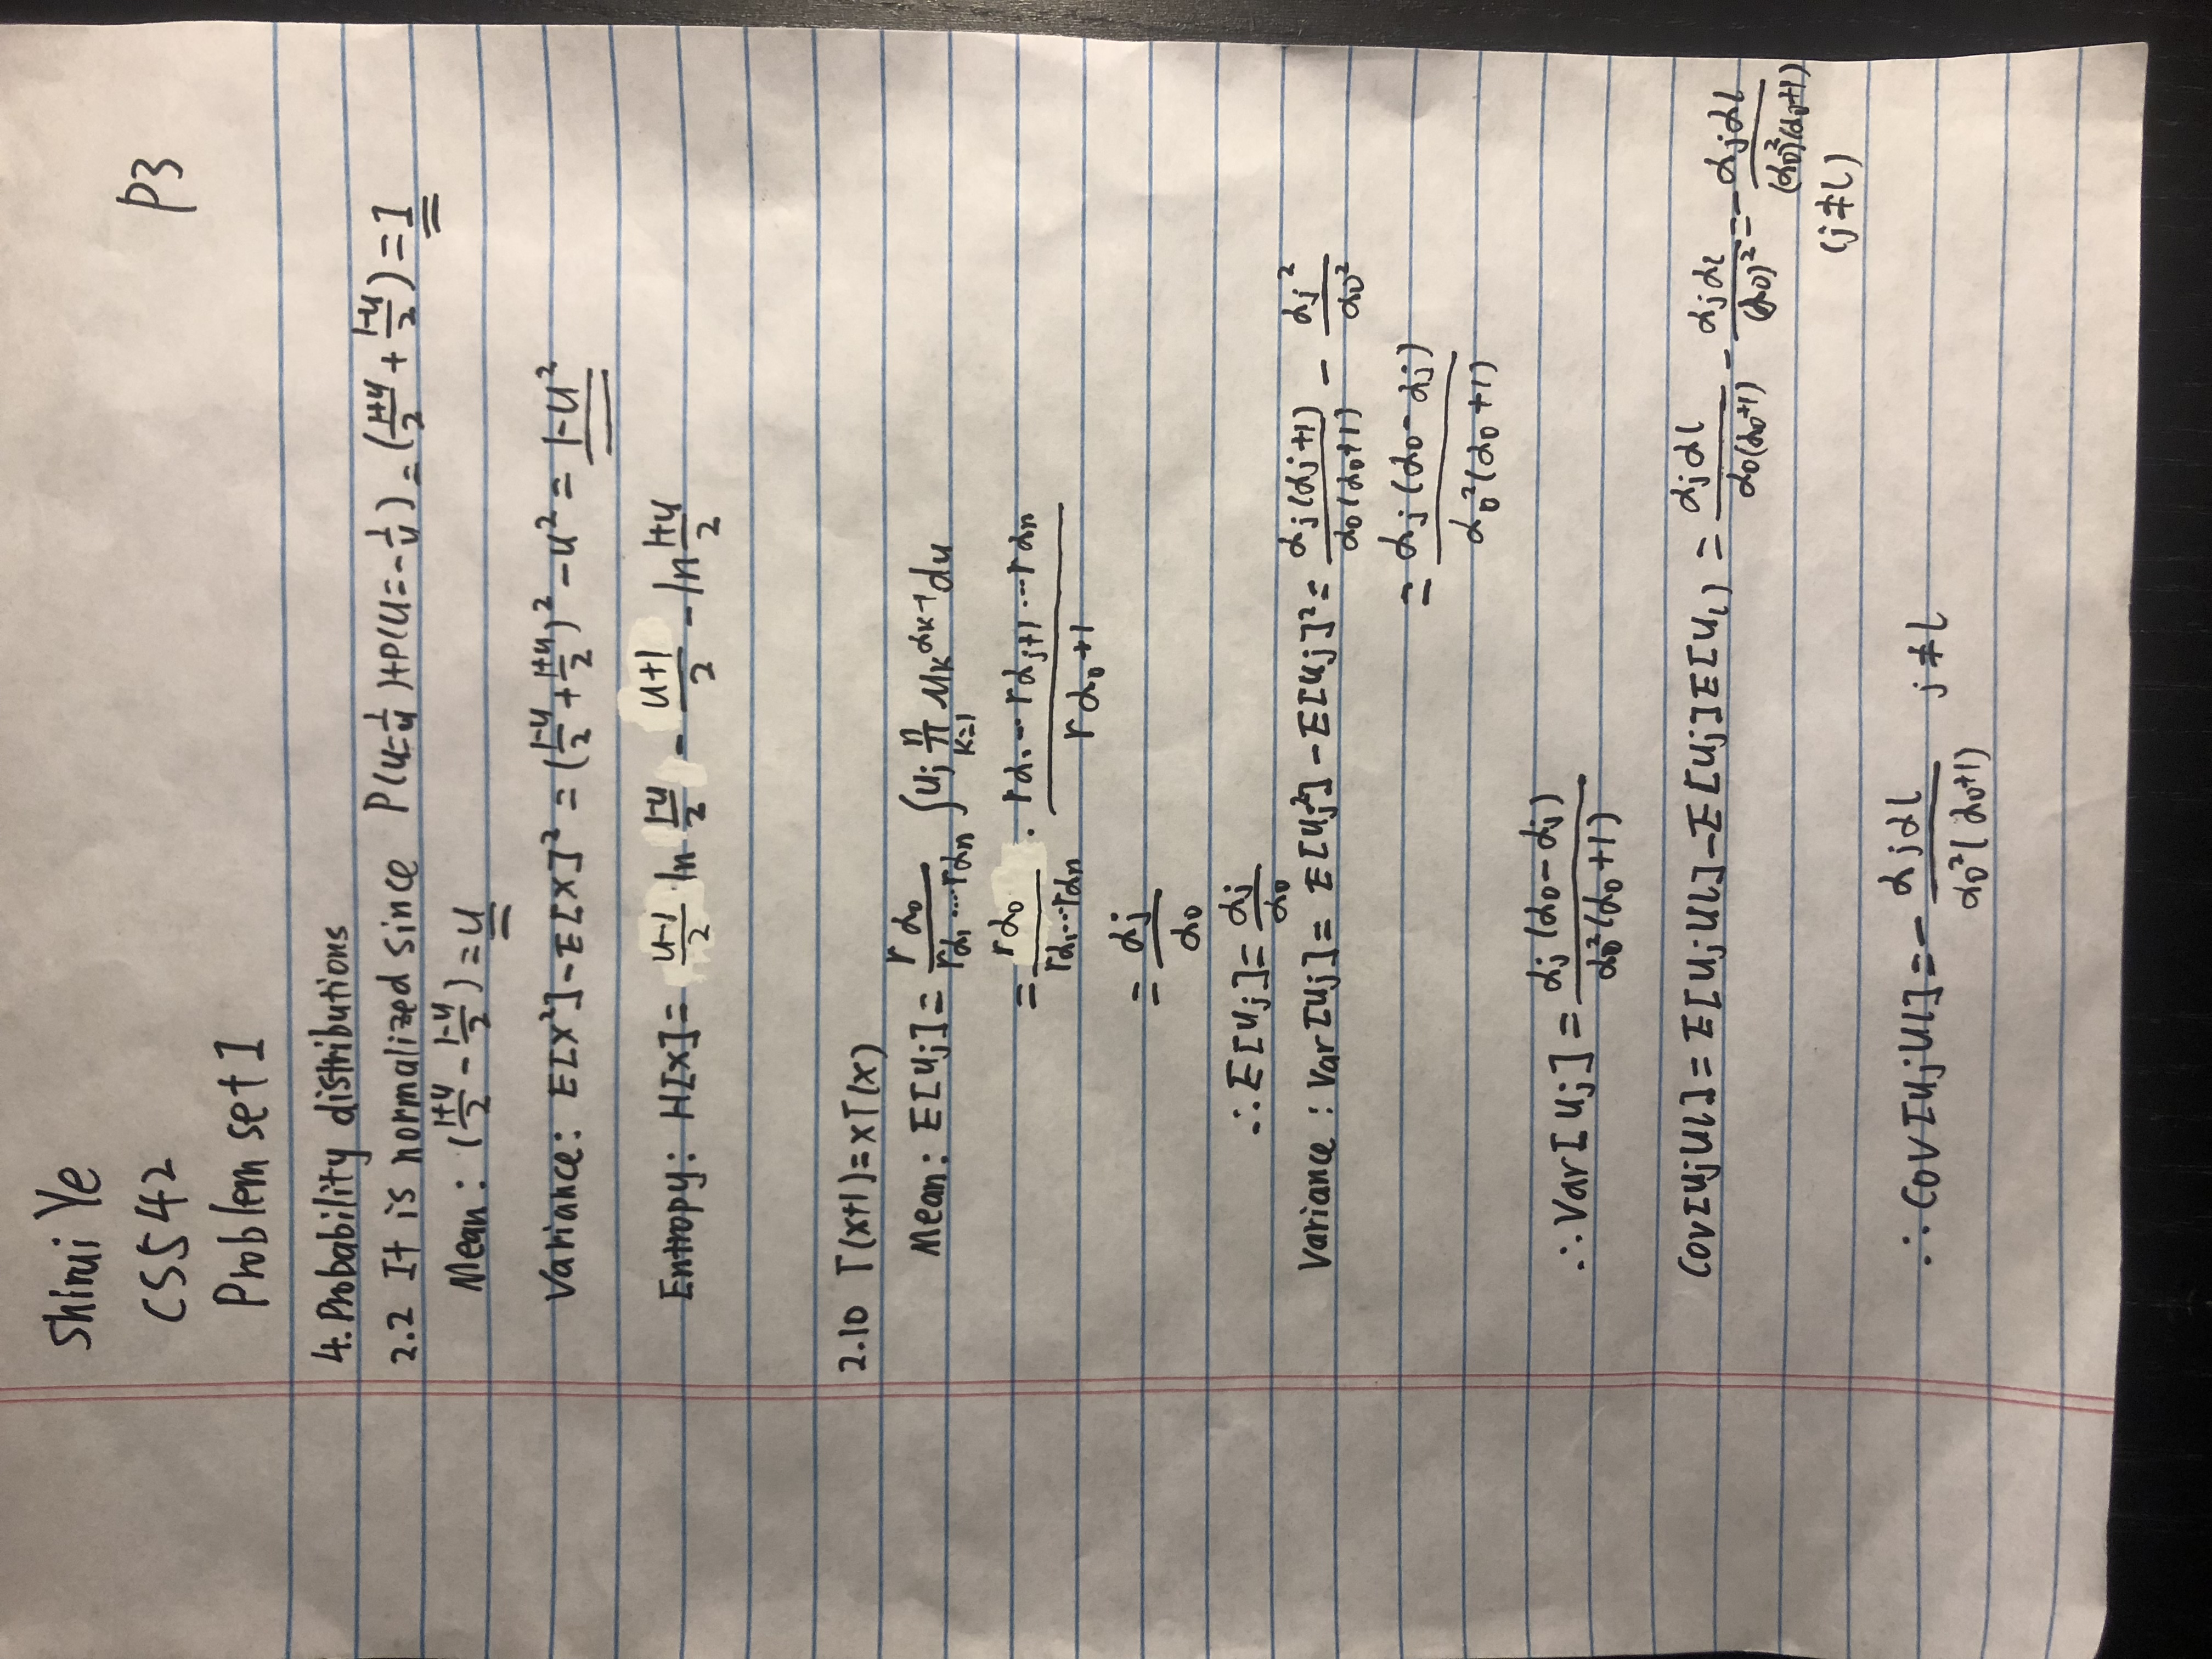 Shirui Ye
CS542
P3
Problem set 1
4. Probability distributions
2.2 It is normalized since P(U=1/u)+P(U=-1/u) = (1+u/2 + 1-u/2) = 1
Mean: (1+u/2 - 1-u/2) = u
Variance: E[X²]-E[X]² = (1-u/2 + 1+u/2)² - u² = 1-u²
Entropy: H[X] = u-1/2 ln 1-u/2 - u+1/2 - ln 1+u/2
2.10 Γ(x+1)=xΓ(x)
Mean: E[uj] = Γα₀/Γα₁···Γαn ∫uj n π k=1 μk^αk-1 du
= Γα₀/Γα₁···Γαn · Γα₁···Γαj+1···Γαn/Γα₀+1
= αj/α₀
∴E[uj] = αj/α₀
Variance: Var[uj] = E[uj²] - E[uj]² = αj(αj+1)/α₀(α₀+1) - αj²/α₀²
= αj(α₀-αj)/α₀²(α₀+1)
∴Var[uj] = αj(α₀-αj)/α₀²(α₀+1)
Cov[ujul] = E[ujul]-E[uj]E[ul) = αjαl/α₀(α₀+1) - αjαl/(α₀)² = -αjαl/(α₀)²(α₀+1)
(j≠l)
∴Cov[ujul] = -αjαl/α₀²(α₀+1) j≠l